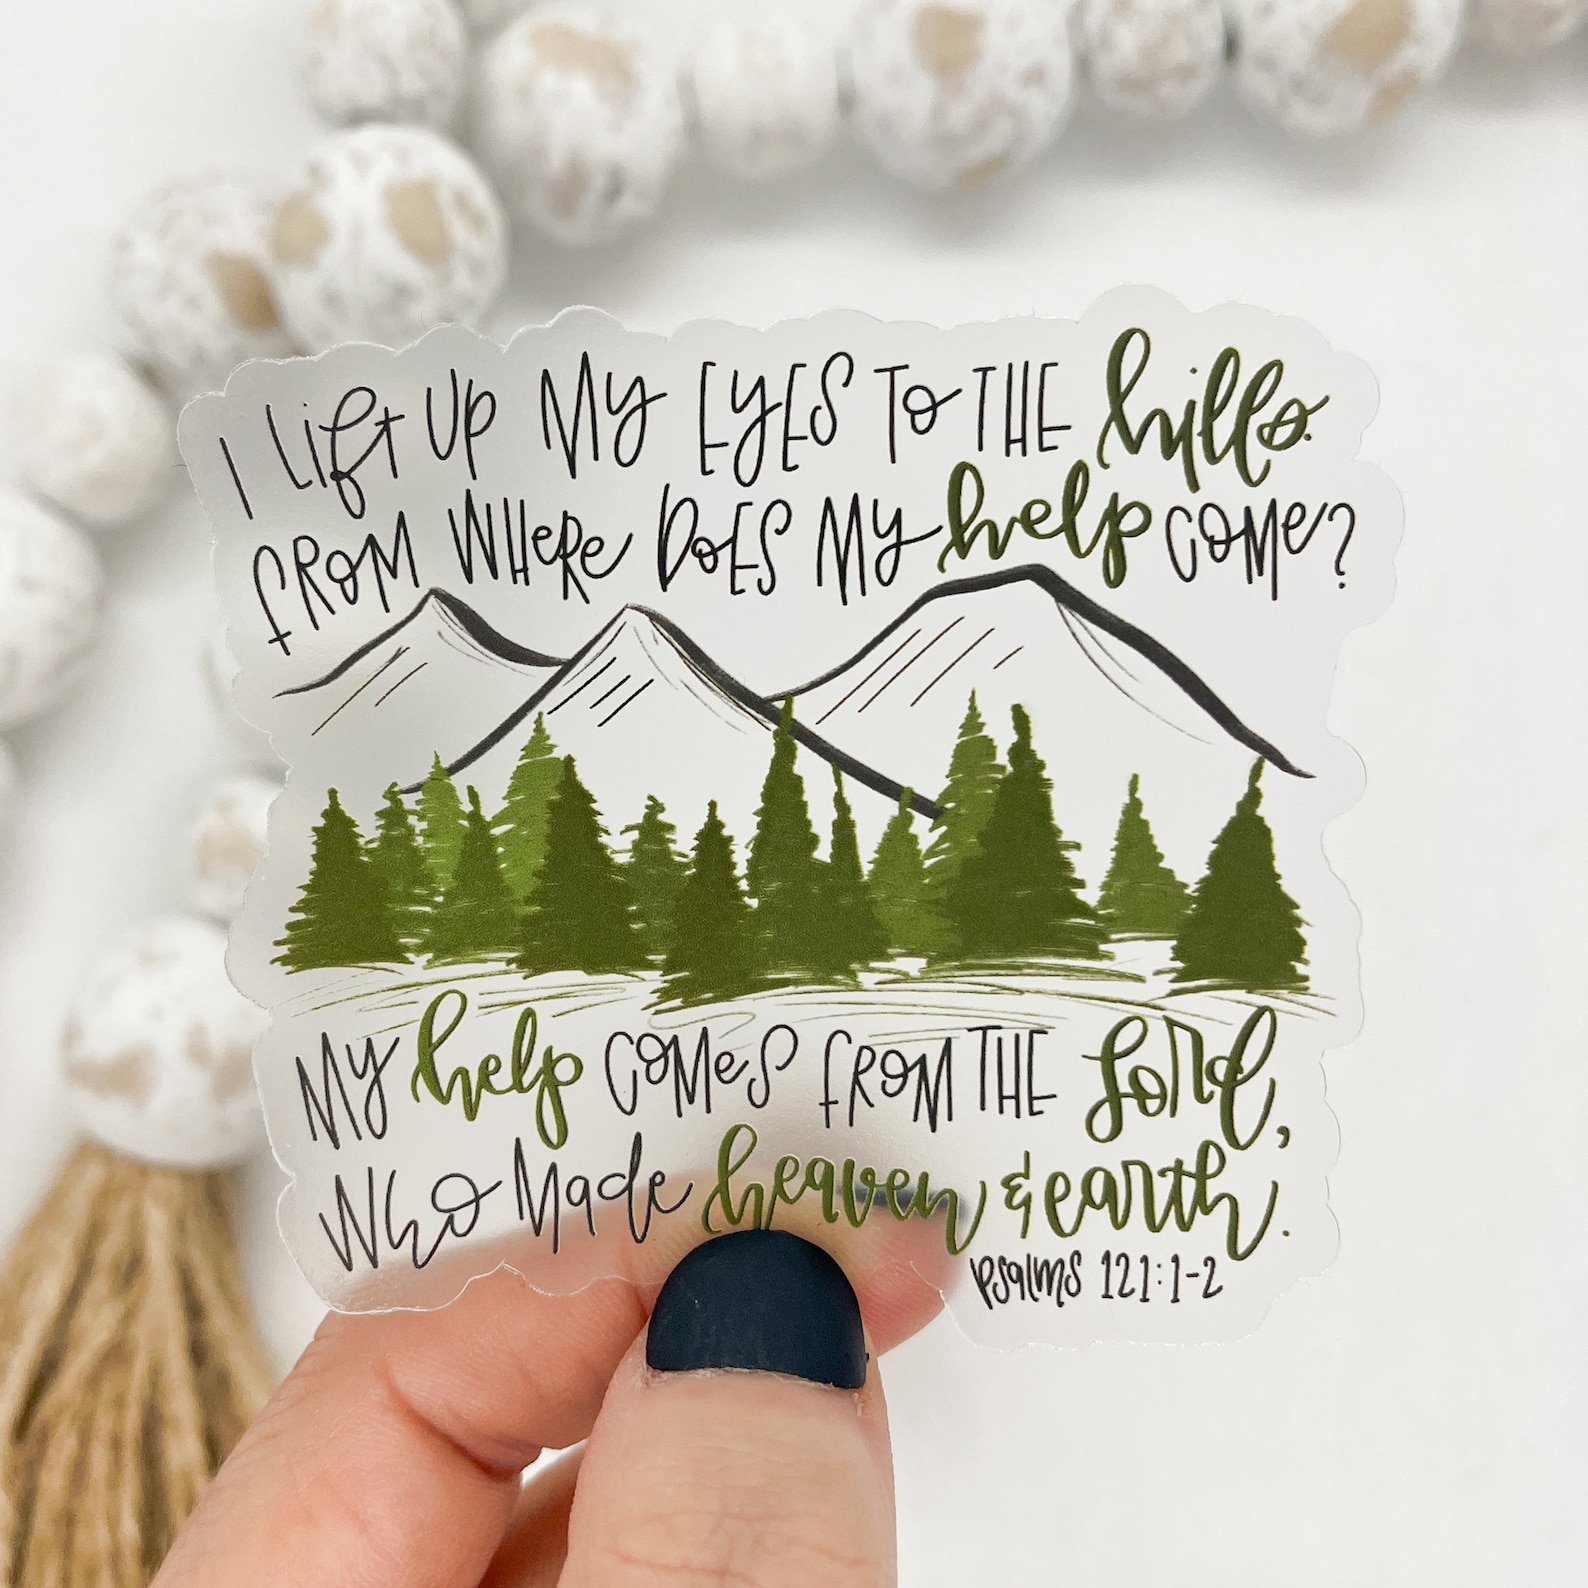 I Lift UP MY EYES TO THE hills.
FROM WHeRe DOES MY help COMe?
MY help COMeS FROM THE Lord,
Who Made heaven & earth.
Psalms 121:1-2